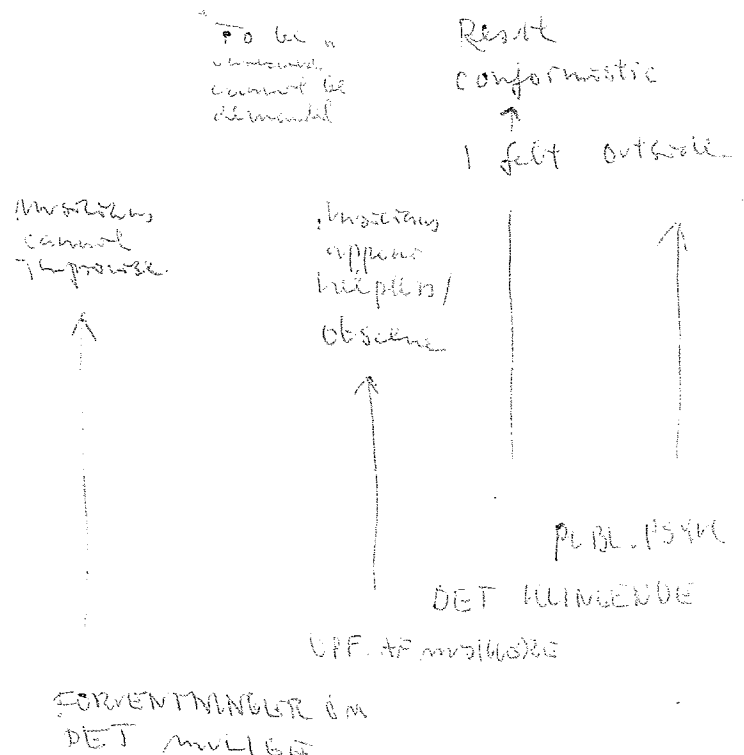 "To be"
cannot be
demanded
Result
conformistic
I felt outside
Musicians
cannot
improvise
Musicians
appear
helpless/
obscene
PUBL. PSYK
DET KLINGENDE
OPF. AF MUSIKERE
FORVENTNINGER OM
DET MULIGE